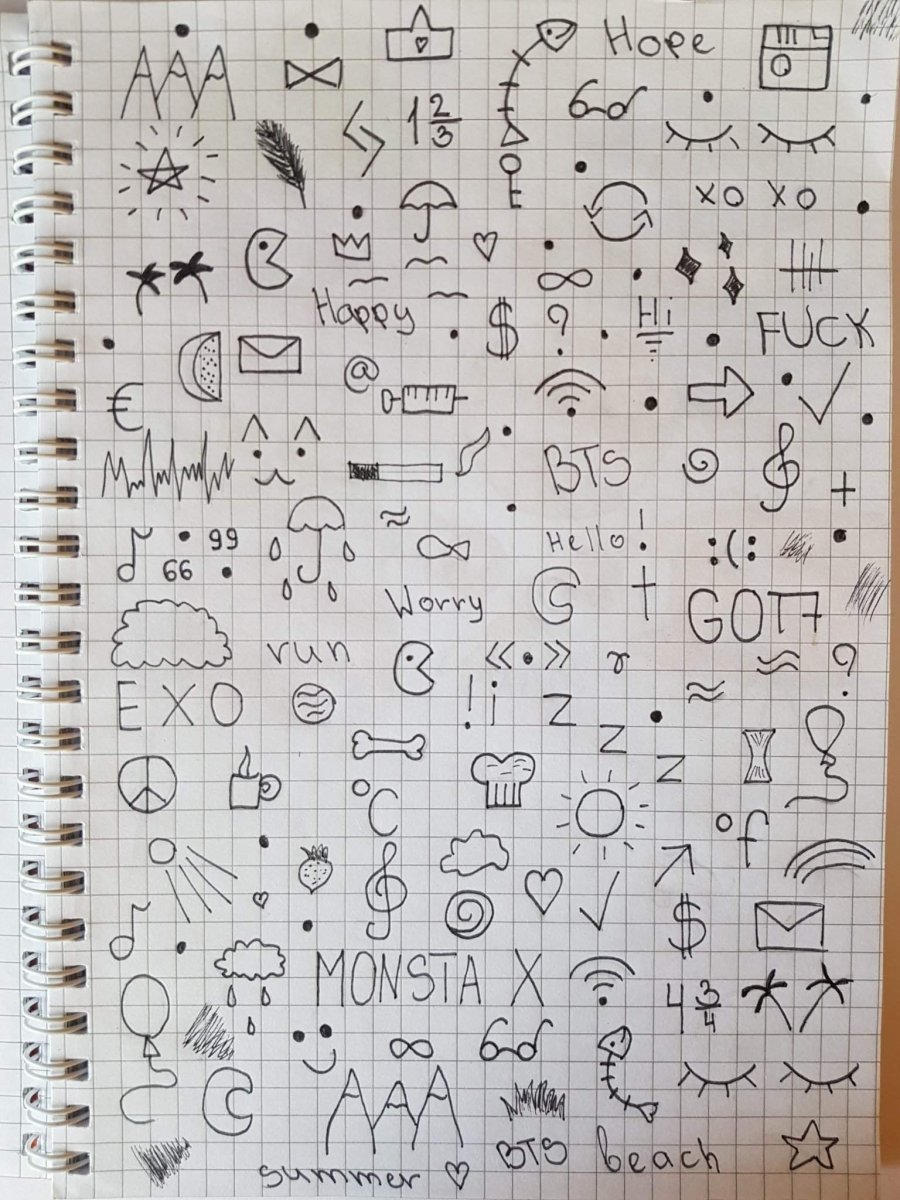 Hope
1 2/3
xo xo
Happy
$ ? Hi
FUCK
@
€
BTS
+
99
66
Hello!
:(:
Worry
GOT7
run
«•» r
?
EXO
!i z
z
z
°C
°f
$
MONSTA X
4 3/4
BTS
beach
summer